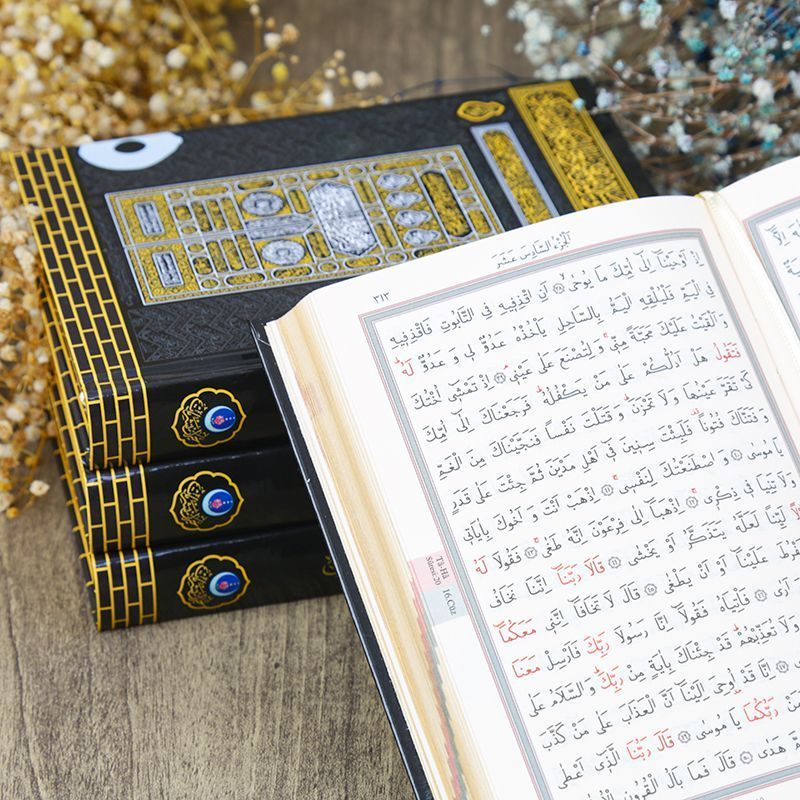 الجزء السادس عشر
٣١٣
اِذْ اَوْحَيْنَٓا اِلٰٓى اُمِّكَ مَا يُوحٰىۙ ﴿٣٨﴾ اَنِ اقْذِفِيهِ فِي التَّابُوتِ فَاقْذِفِيهِ
فِي الْيَمِّ فَلْيُلْقِهِ الْيَمُّ بِالسَّاحِلِ يَأْخُذْهُ عَدُوٌّ لِي وَعَدُوٌّ لَهُۜ
وَاَلْقَيْتُ عَلَيْكَ مَحَبَّةً مِنِّي وَلِتُصْنَعَ عَلٰى عَيْنِي ﴿٣٩﴾ اِذْ تَمْشِٓي اُخْتُكَ
فَتَقُولُ هَلْ اَدُلُّكُمْ عَلٰى مَنْ يَكْفُلُهُ فَرَجَعْنَاكَ اِلٰٓى اُمِّكَ
كَيْ تَقَرَّ عَيْنُهَا وَلَا تَحْزَنَ وَقَتَلْتَ نَفْسًا فَنَجَّيْنَاكَ مِنَ الْغَمِّ
وَفَتَنَّاكَ فُتُونًا فَلَبِثْتَ سِنِينَ فِٓي اَهْلِ مَدْيَنَ ثُمَّ جِئْتَ عَلٰى قَدَرٍ
يَا مُوسٰى ﴿٤٠﴾ وَاصْطَنَعْتُكَ لِنَفْسِي ﴿٤١﴾ اِذْهَبْ اَنْتَ وَاَخُوكَ بِاٰيَاتِي
وَلَا تَنِيَا فِي ذِكْرِي ﴿٤٢﴾ اِذْهَبَٓا اِلٰى فِرْعَوْنَ اِنَّهُ طَغٰى ﴿٤٣﴾ فَقُولَا لَهُ
لَيِّنًا لَعَلَّهُ يَتَذَكَّرُ اَوْ يَخْشٰى ﴿٤٤﴾ قَالَا رَبَّنَٓا اِنَّنَا نَخَافُ
عَلَيْنَٓا اَوْ اَنْ يَطْغٰى ﴿٤٥﴾ قَالَ لَا تَخَافَٓا اِنَّنِي مَعَكُمَٓا
﴿٤٦﴾ فَأْتِيَاهُ فَقُولَٓا اِنَّا رَسُولَا رَبِّكَ فَاَرْسِلْ مَعَنَا
وَلَا تُعَذِّبْهُمْ قَدْ جِئْنَاكَ بِاٰيَةٍ مِنْ رَبِّكَ وَالسَّلَامُ عَلٰى
﴿٤٧﴾ اِنَّا قَدْ اُوحِيَ اِلَيْنَٓا اَنَّ الْعَذَابَ عَلٰى مَنْ كَذَّبَ
رَبُّكُمَا يَا مُوسٰى ﴿٤٩﴾ قَالَ رَبُّنَا الَّذِٓي اَعْطٰى
هَدٰى ﴿٥٠﴾ قَالَ فَمَا بَالُ الْقُرُونِ الْاُولٰى
Tâ-Hâ
Sûresi:20
16.Cüz